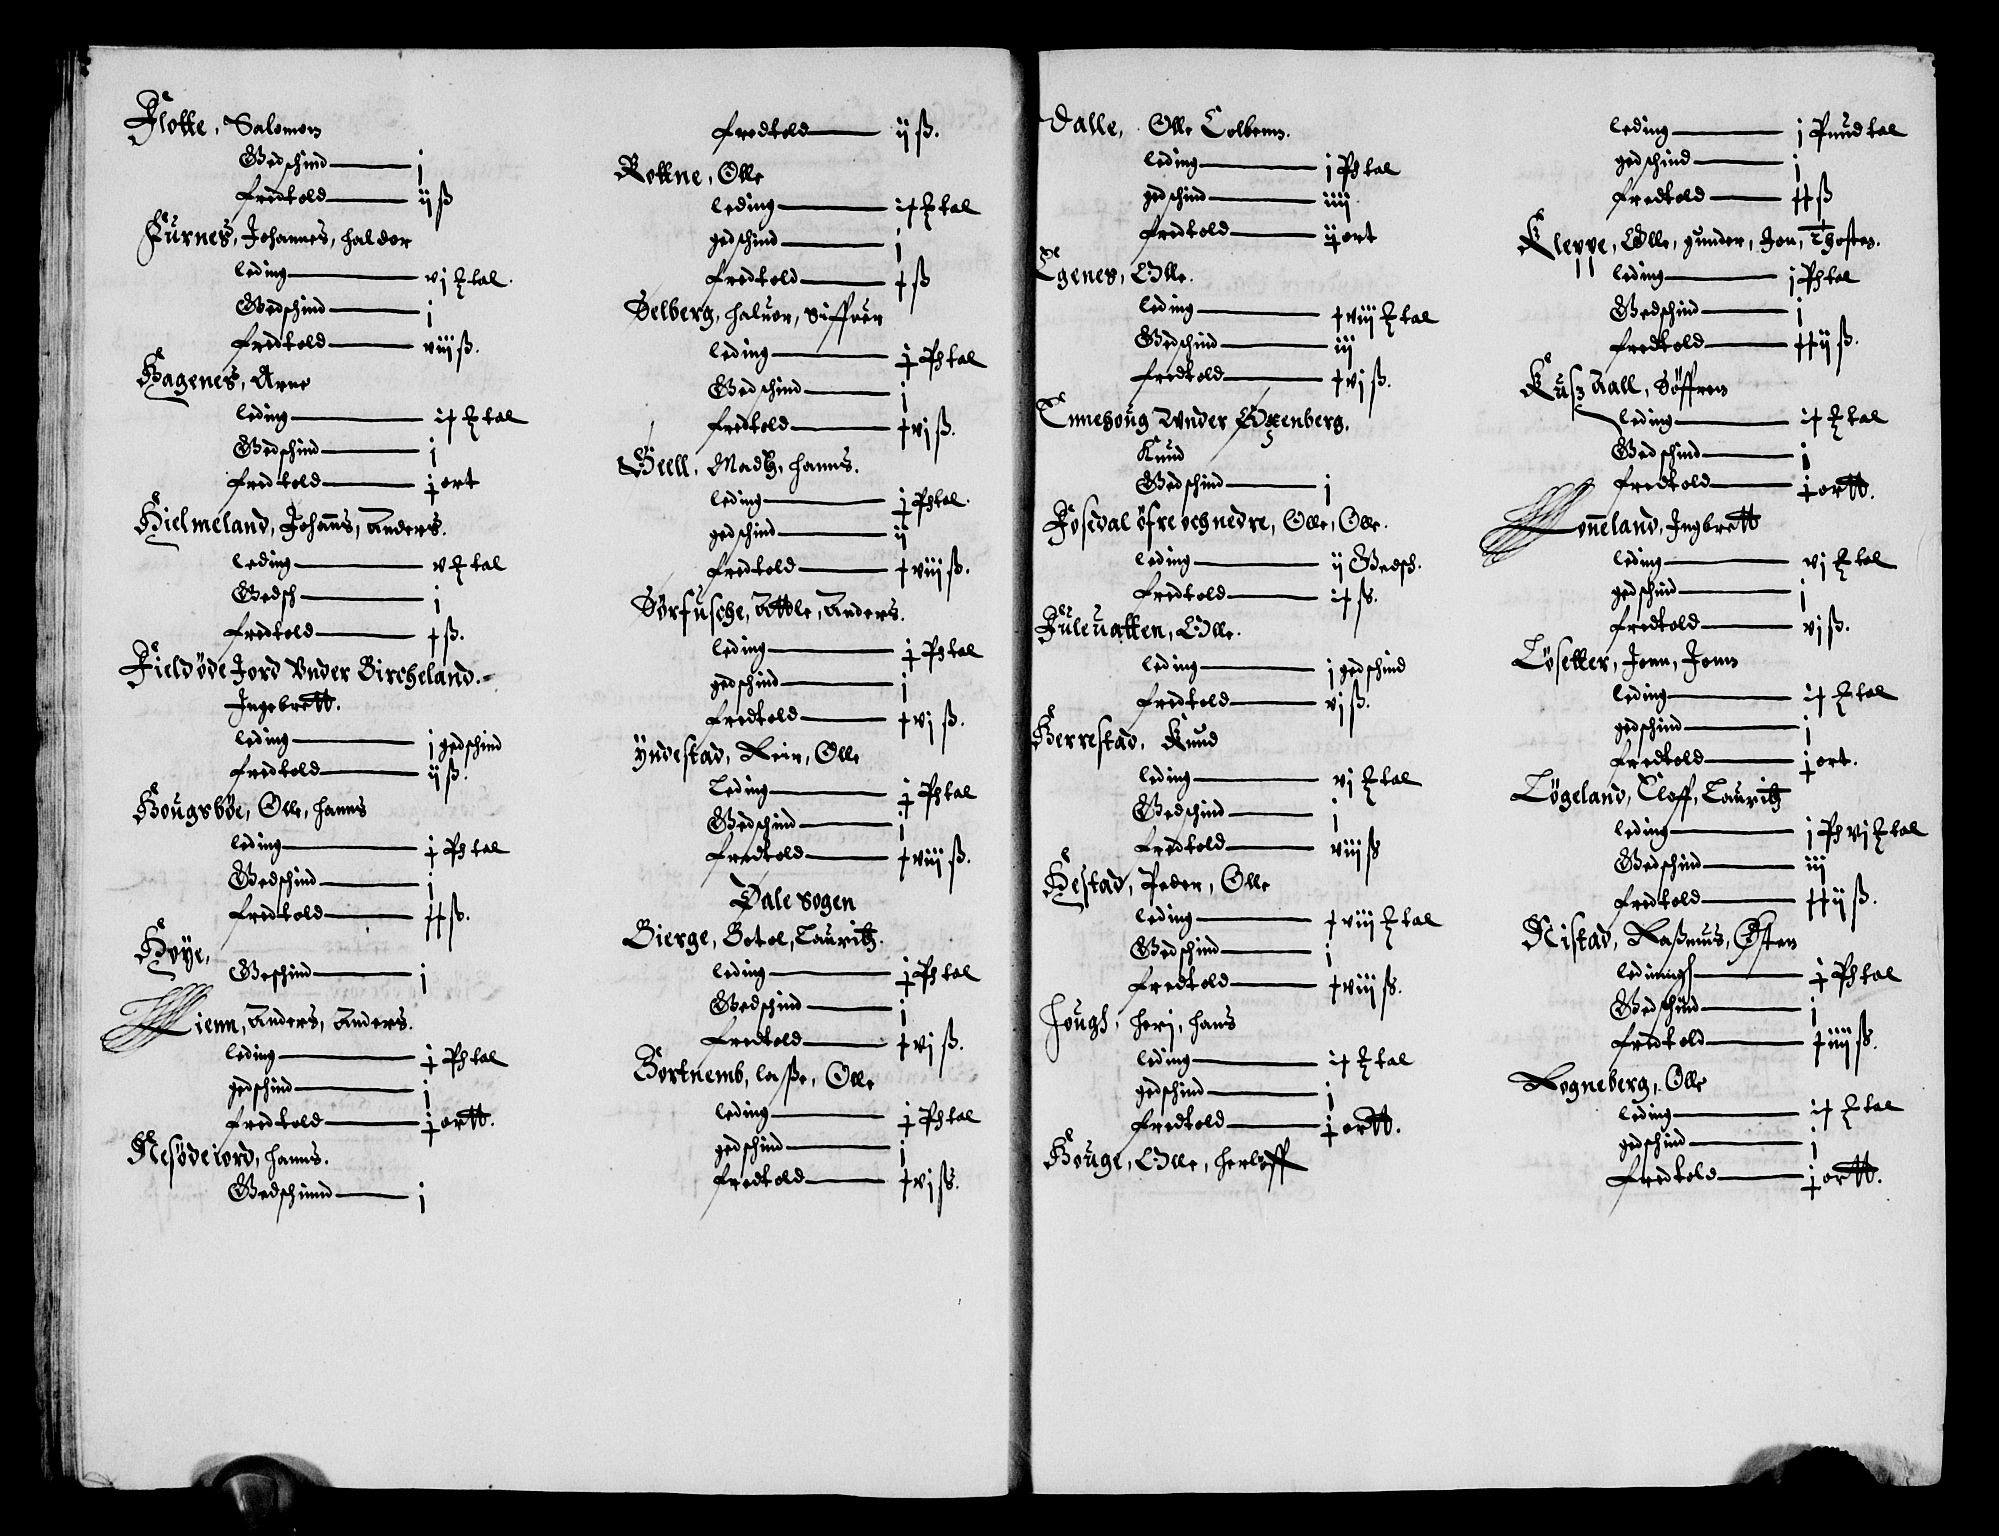 Flotte, Salomon
Gedschind j
Fredtold ij ß
Furnes, Johannes, haldor
leding vj ₰ tal.
Gedschind j
Fredtold viij ß.
Hagenes, Arne
leding i† ₰ tal
Gedschind j
Fredtold ɉ ort
Hielmeland, Johans, Anders.
leding v ₰ tal
Gedsch j
Fredtold † ß.
Fieldøde Jord Vnder Bircheland.
Ingebrett.
leding j gedschind
Fredtold ij ß.
Hougsbøe, Olle, hanns
leding ɉ Ph tal
Gedschind j
Fredtold †† ß.
Høye,
Geschind j
Lienn, Anders, Anders.
leding ɉ Ph tal
gedschind j
Fredtold ɉ ortt.
Nesødeiord, hanns.
Gedschinnd j
Fredtold ij ß.
Rottne, Olle
leding i† ₰ tal
gedschind j
Fredtold † ß
Selberg, haluor, Siffuer
leding ɉ Ph tal
Gedschind j
Fredtold †vj ß.
Madtz, hanns.
leding ɉ Ph tal.
gedschind ij
Fredtold †viij ß.
Sørfusche, Attle, Anders.
leding ɉ Ph tal
gedschind j
Fredtold †vj ß.
Ÿndestad, Reir, Olle
Leding ɉ Ph tal
Gedschind j
Fredtold †viij ß.
Dale sogen
Bierge, Botol, Lauritz.
leding ɉ Ph tal
Gedschind j
Fredtold †vj ß.
Bortnemb, laße, Olle
leding ɉ Ph tal
gedschind j
Fredtold †vj ß.
Dalle, Olle Colbenn.
leding j Ph tal
gedschind iiij
Fredtold ij ort
Egenes, Olle.
leding †viij ₰ tal
Gedschind iij
Fredtold †vj ß.
Ennesoug Vnder Oxenberg.
Knud
Gedschind j
Fosdal øfre och nedre, Olle, Olle.
leding ij Gedsch.
Fredtold i† ß.
Fuleuatten, Olle.
leding j gedschind
Fredtold vj ß.
Herrestad, Knud
leding vj ₰ tal
Gedschind j
Fredtold viij ß
Hestad, Peder, Olle
leding †viij ₰ tal
Gedschind j
Fredtold †viij ß.
hougs, herj, hans
leding i† ₰ tal
gedschind j
Fredtold ɉ ortt.
Houge, Olle, herloff
leding j Pund tal
gedschind j
Fredtold †† ß
Kleppe, Olle, gunder, Jon,
leding j Ph tal
Gedschind j
Fredtold ††ij ß.
Søffren
leding i† ₰ tal
Gedschind j
Fredtold ɉ ortt.
Loneland, Ingbrett
leding vj ₰ tal
gedschind j
Fredtold vj ß.
Løsetter, Jonn, Jonn
leding i† ₰ tal
gedschind j
Fredtold ɉ ort.
Løgeland, Oloff, Lauritz
leding j Ph vj ₰ tal
Gedschind iij
Fredtold ††ij ß.
Nistad, Raßmus, Østen
ledinngs ɉ Ph tal
Gedschind j
Fredtold †iiij ß.
Rogneberg, Olle
leding i† ₰ tal
gedschind j
Fredtold ɉ ortt.